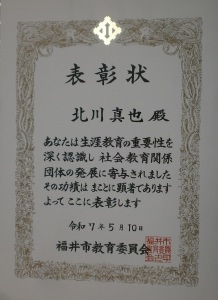 表彰状
北川真也 殿
あなたは生涯教育の重要性を
深く認識し 社会教育関係
団体の発展に寄与されました
その功績は まことに顕著であります
よって ここに表彰します
令和7年5月10日
福井市教育委員会